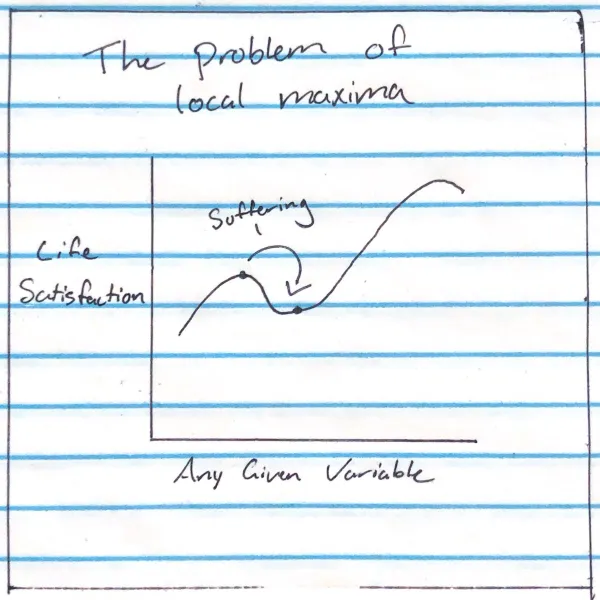 The problem of
local maxima
Suffering
Life
Satisfaction
Any Given Variable